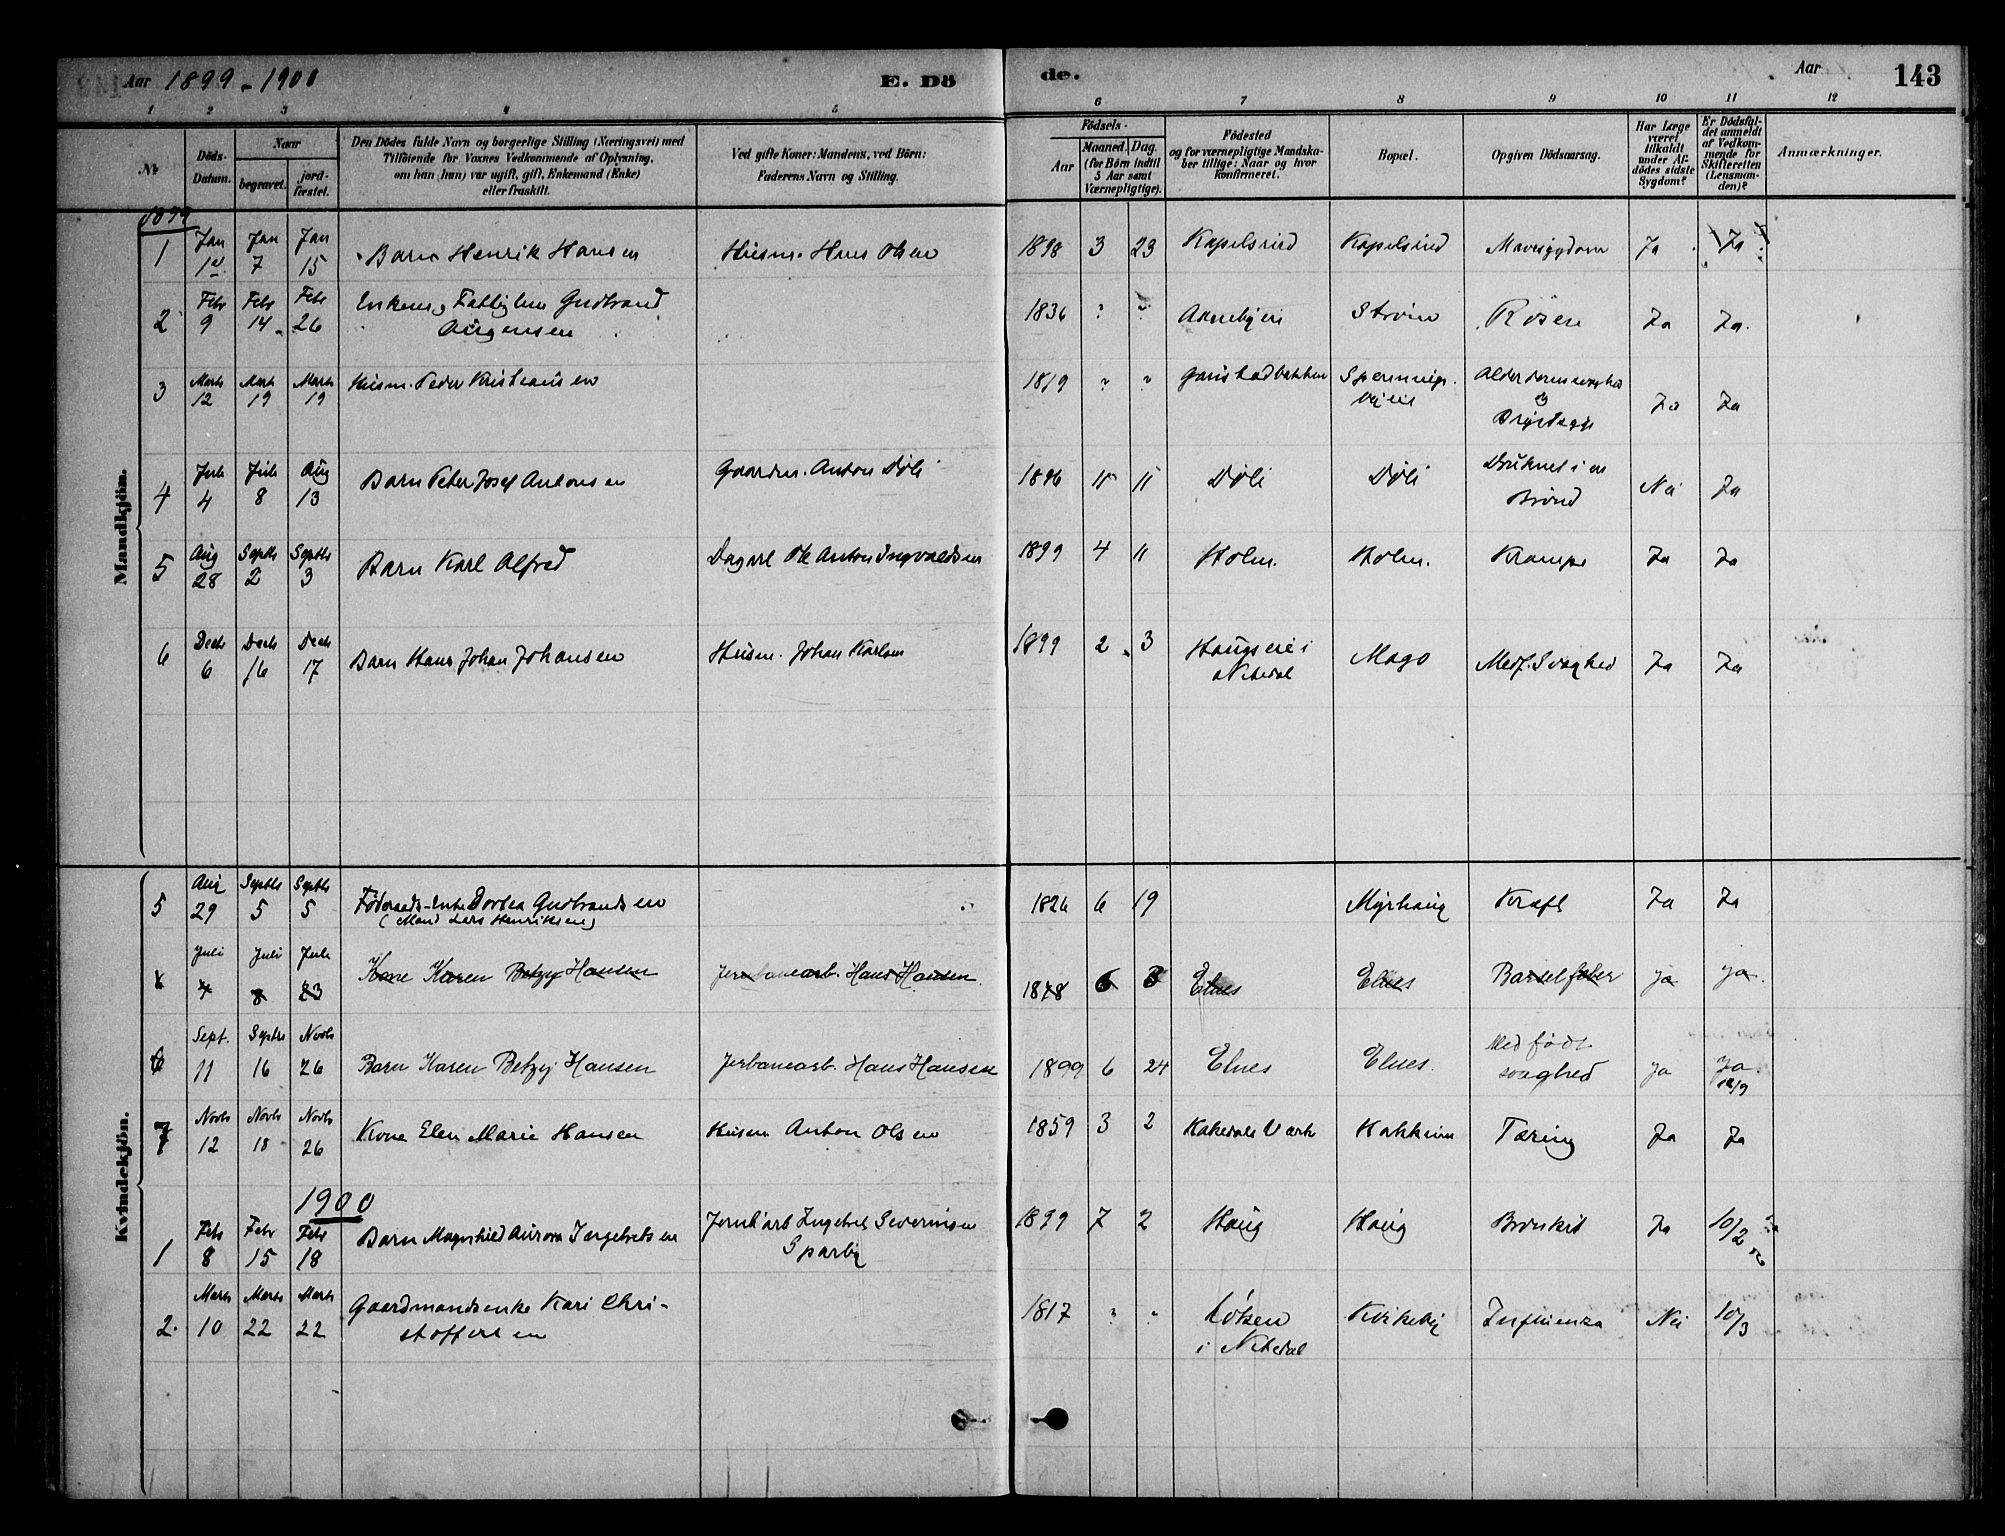 Aar 1899-1900 E. Dö
de. Aar 143
1 2 3 4 5 6 7 8 9 10 11 12
No.
Döds-
Datum.
Naar
begravet.
jord-
fæstet.
Den Dödes fulde Navn og borgerlige Stilling (Næringsvei) med
Tilföiende for Voxnes Vedkommende af Oplysning,
om han (hun) var ugift, gift, Enkemand (Enke)
eller fraskilt.
Ved gifte Koner: Mandens, ved Börn:
Faderens Navn og Stilling.
Födsels-
Aar
Maaned. Dag.
(for Börn indtil
5 Aar samt
Værnepligtige).
Födested
og for værnepligtige Mandska-
ber tillige: Naar og hvor
konfirmeret.
Bopæl.
Opgiven Dödsaarsag.
Har Læge
været
tilkaldt
under Af-
dödes sidste
Sygdom?
Er Dödsfal-
det anmeldt
af Vedkom-
mende for
Skifteretten
(Lensman-
den)?
Anmærkninger.
Mandkjön.
1899
1 Jan Jan 7 Jan 15 Barn Henrik Hansen Husm. Hans Olsen 1898 3 23 Kapelsrud Kapelsrud Mavesygdom Ja Ja
2 Febr 9 Febr 14 Febr 26 Enkem, Gudbrand
Aügensen 1836 " " Strøm Rosen Ja Ja.
3 Marts 12 Marts 19 Marts 19 Husm. Peder Kristiansen 1819 " " Ja Ja
4 Juli 4 Juli 8 Aug 13 Barn Peter Josef Antonsen Gaardm. Anton Døli 1896 11 11 Døli Døli Druknet i en
Brønd Nei Ja
5 Aug 28 Septb 2 Septb 3 Barn Karl Alfred Dagarb. Ole Anton Ingvaldsen 1899 4 11 Holm. Holm. Krampe Ja Ja
6 Decb 6 Decb 16 Decb 17 Barn Hans Johan Johansen Husm. Johan Karlsen 1899 2 3 Haugseie i
Nitedal Mago Medf. Svaghed Ja Ja
Kvindekjön.
5 Aug 29 Septb 5 Septb 5 Føderaads-Enke Dorthea Gudbrandsen
(Mand Lars Henriksen) 1826 6 19 Myrhaug Kræft Ja Ja
Juli 4 Juli 8 Juli 23 Kone Karen Betzy Hansen Jernbanearb. Hans Hansen. 1878 6 3 Elnes Elnes Barselfeber ja ja.
6 Sept. 11 Septbr 16 Novb 26 Barn Karen Betzy Hansen Jerbanearb. Hans Hansen 1899 6 24 Elnes Elnes. Medfødt
svaghed ja Ja.
12/9
7 Novb 12 Novb 18 Novb 26 Kone Elen Marie Hansen Husm Anton Olsen 1859 3 2 Hakedals Værk Hakkim Tæring Ja Ja
1900
1 Febr 8 Febr 15 Febr 18 Barn Magnhild Aurora Ingebretsen Jernb'arb Ingebret Severinsen
Sparby 1899 7 2 Haug Haug Bronkit Ja 10/2
2. Marts 10 Marts 22 Marts 22 Gaardmandsenke Kari Chri-
stoffersen 1817 " " Løtsen
i Nitedal Kvikeby Influenza Nei 10/3